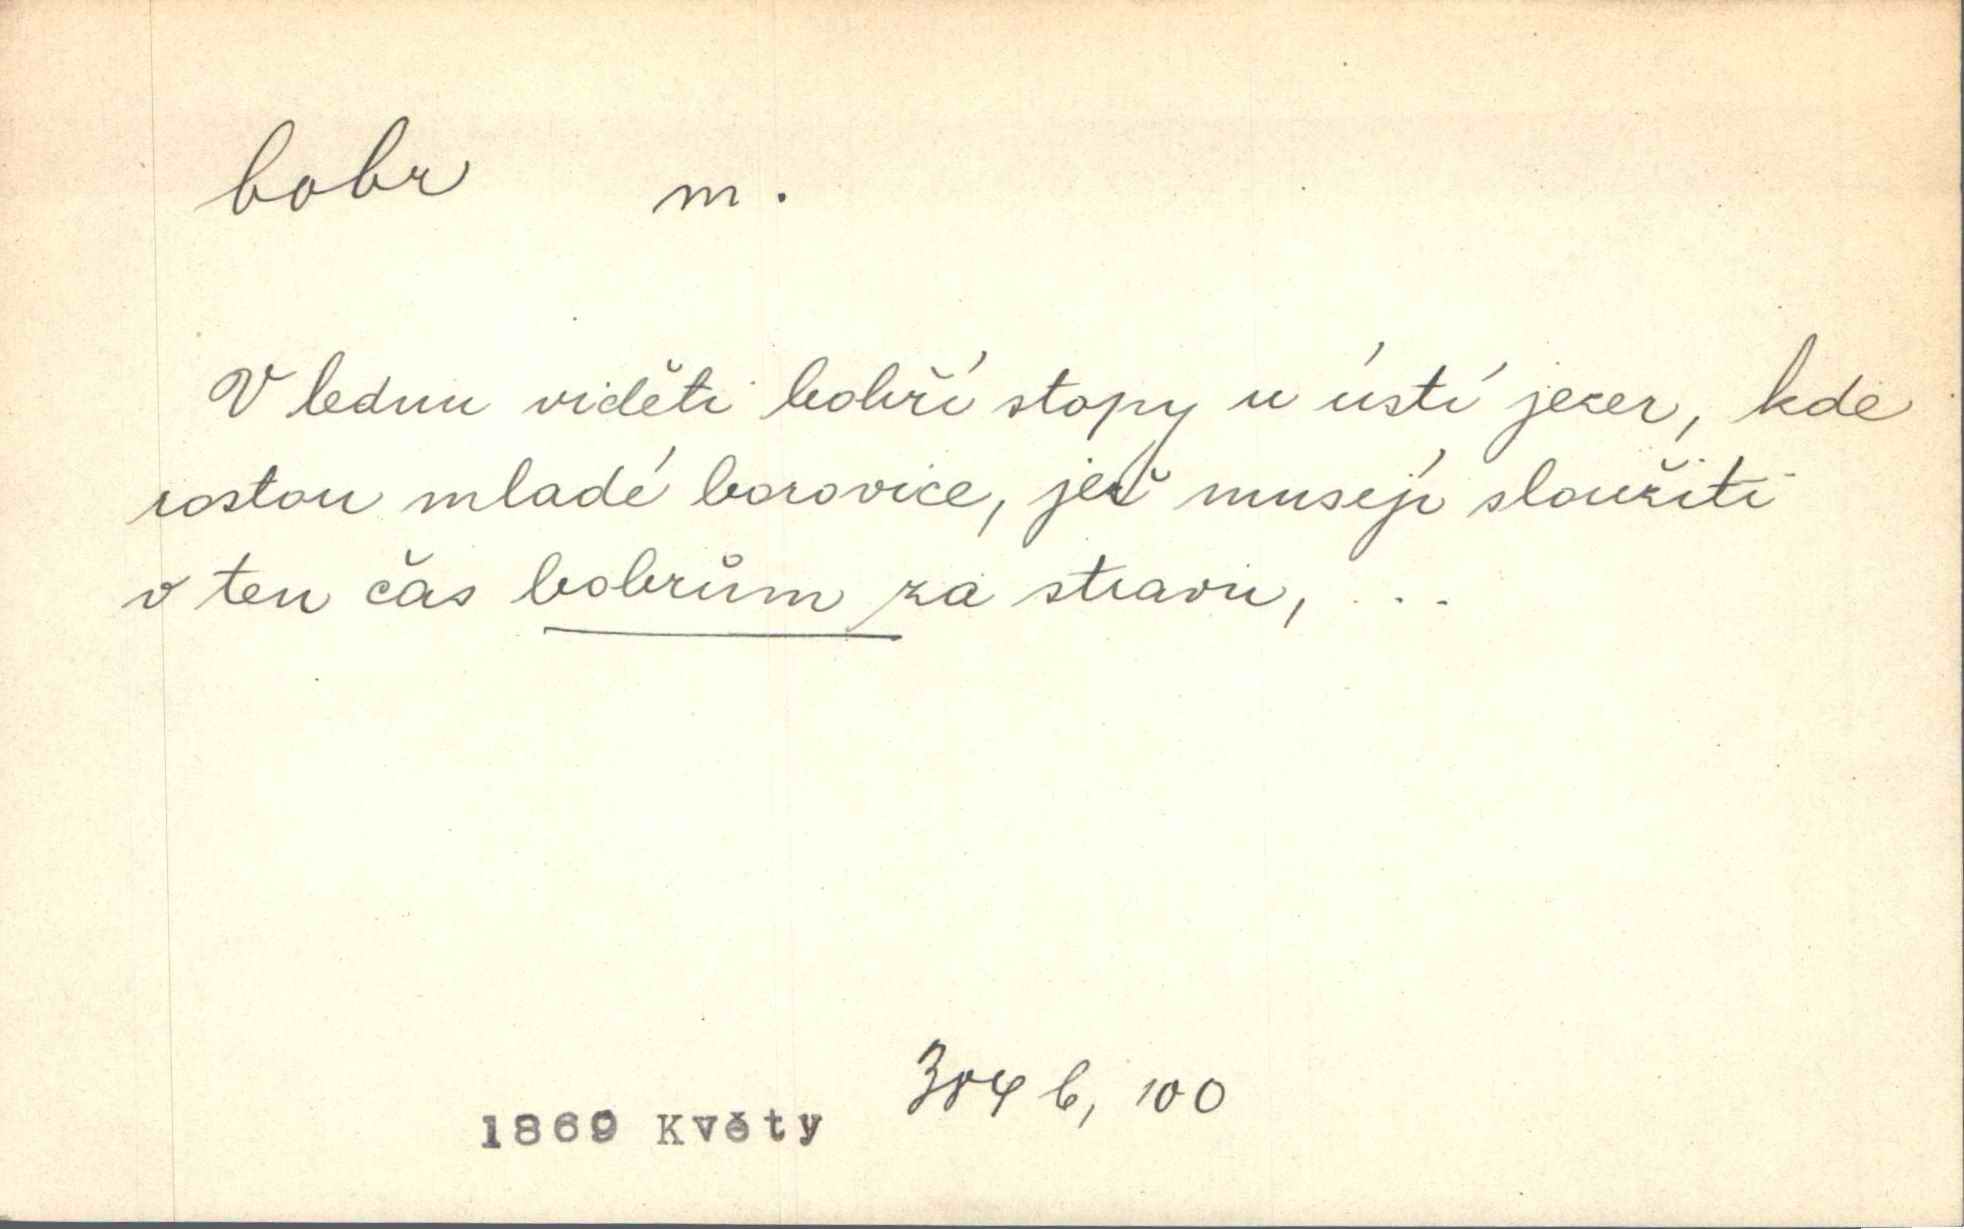 bobr m.
V lednu viděti bobří stopy u ústí jezer, kde
rostou mladé borovice, jež musejí sloužiti
v ten čas bobrům za stravu, ...
304 b, 100
1869 Květy